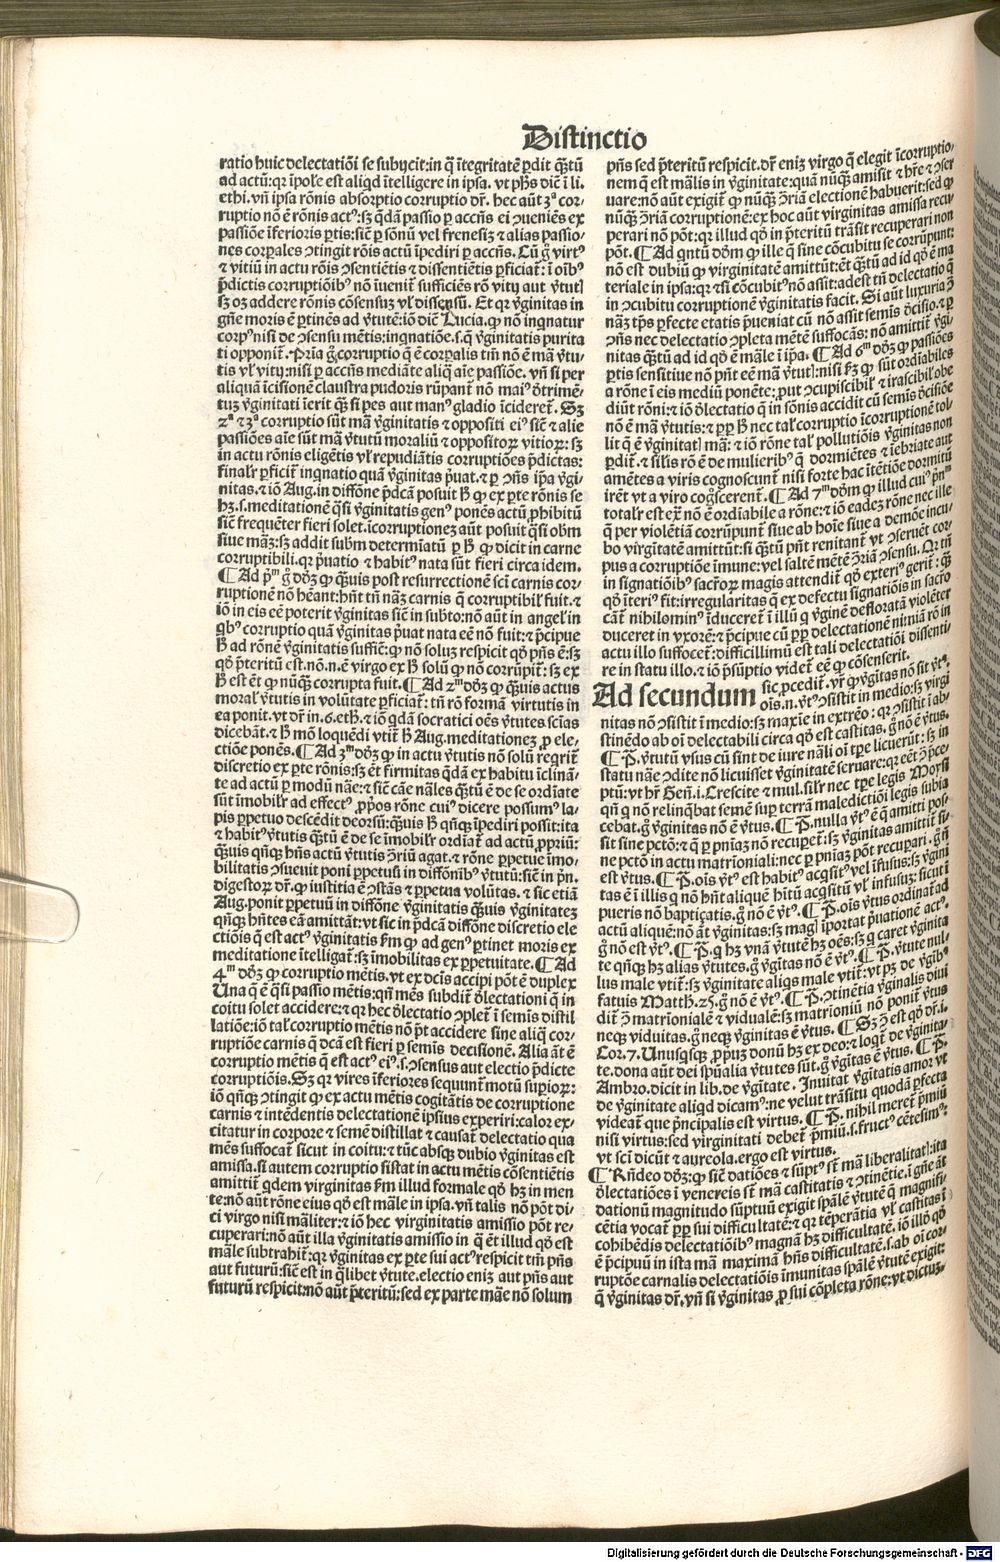 Distinctio
ratio huic delectatiõi se subijcit: in q̃ ĩtegritatẽ ꝑdit q̃ʒtũ
ad actũ: qꝛ ĩpoſſe est aliqd ĩtelligere in ipsa. vt ph̃s dic̃ ĩ li.
ethi. vñ ipsa rõnis absorptio corruptio dr̃. hec aũt 3ᵃ cor-
ruptio nõ ẽ rõnis actꝰ: sʒ q̃dã passio ꝑ accñs ei ꝯueniẽs ex
passiõe ĩferioris ꝑtis: sic̃ ꝑ sõnũ vel frenesiʒ ⁊ alias passio-
nes corꝑales ꝯtingit rõis actũ ĩpediri ꝑ accñs. Cũ g̊ virtꝰ
⁊ vitiũ in actu rõis ꝯsentiẽtis ⁊ dissentiẽtis ꝑficiat̃: ĩ oĩbꝰ
p̃dictis corruptiõibꝰ nõ ĩuenit̃ sufficiẽs rõ vitij aut ṽtut̃
sʒ oʒ addere rõnis cõsensuʒ vł dissensũ. Et qꝛ ṽginitas in
gñe moris ẽ ꝑtinẽs ad ṽtutẽ: iõ dic̃ Lucia. ꝙ nõ inqnatur
corpꝰ nisi de ꝯsensu mẽtis: inqnatiõe .s. q̃ ṽginitatis purita
ti opponit̃. Pria g̊ corruptio q̃ ẽ corꝑalis tm̃ nõ ẽ mã ṽtu-
tis vł vitij: nisi ꝑ accñs mediãte aliq̃ aĩe passiõe. vñ si per
aliquã ĩcisionẽ claustra pudoris rũpant̃ nõ maiꝰ ð̃trimẽ-
tuʒ ṽginitati ĩcrit q̃ʒ si pes aut manꝰ gladio ĩcideret̃. Sʒ
2ᵃ ⁊ 3ᵃ corruptio sũt mã ṽginitatis ⁊ oppositi eiꝰ sic̃ ⁊ alie
passiões aĩe sũt mã ṽtutũ moraliũ ⁊ oppositoꝝ vitioꝝ: sʒ
in actu rõnis eligẽtis vł repudiãtis corruptiões p̃dictas:
finalr̃ ꝑficit̃ inqnatio quã ṽginitas p̃uat. ⁊ ꝑ ꝯñs ip̃a ṽgi-
nitas. ⁊ iõ Aug. in diffõne p̃dcã posuit ħ ꝙ ex ꝑte rõnis se
hʒ .s. meditationẽ q̃si ṽginitatis genꝰ ponẽs actũ ꝓhibitũ
sic̃ frequẽter fieri solet. ĩcorruptioneʒ aũt posuit q̃si obm̃
siue mãʒ: sʒ addit subm̃ determĩatũ ꝑ ħ ꝙ dicit in carne
corruptibili. qꝛ p̃uatio ⁊ habitꝰ nata sũt fieri circa idem.
¶ Ad p̃ᵐ g̊ d̃oʒ ꝙ q̃ʒuis post resurrectionẽ sc̃i carnis cor-
ruptionẽ nõ hẽant: hñt tñ nãʒ carnis q̃ corruptibił fuit. ⁊
iõ in eis eẽ poterit ṽginitas sic̃ in subto: nõ aũt in angeł in
qbꝰ corruptio quã ṽginitas p̃uat nata eẽ nõ fuit: ⁊ p̃cipue
ħ ad rõnẽ ṽginitatis suffic̃: ꝙ nõ soluʒ respicit qð p̃ñs ẽ: sʒ
qð p̃teritũ est. nõ .n. ẽ virgo ex ħ solũ ꝙ nõ corrũpit̃: sʒ ex
ħ est ẽt ꝙ nũq̃ʒ corrupta fuit. ¶ Ad 2ᵐ d̃oʒ ꝙ q̃ʒuis actus
moral̃ ṽtutis in volũtate ꝑficiat̃: tñ rõ formã virtutis in
ea ponit. vt dr̃ in .6. eth̃. ⁊ iõ q̃dã socratici oẽs ṽtutes sciãs
dicebãt. ⁊ ħ mõ loquẽdi vtit̃ ħ Aug. meditationeʒ ꝓ ele-
ctiõe ponẽs. ¶ Ad 3ᵐ d̃oʒ ꝙ in actu ṽtutis nõ solũ reqrit̃
discretio ex ꝑte rõnis: sʒ ẽt firmitas q̃dã ex habitu ĩclinã-
te ad actũ ꝑ modũ nãe: ⁊ sic̃ cãe nãles q̃ʒtũ ẽ de se ordĩate
sũt ĩmobilr̃ ad effectꝰ ꝓp̃os rõne cuiꝰ dicere possumꝰ la-
pis ꝑpetuo descẽdit deorsũ: q̃ʒuis ħ qñqʒ ĩpediri possit: ita
⁊ habitꝰ ṽtutis q̃ʒtũ ẽ de se ĩmobilr̃ ordĩat̃ ad actũ ꝓpriũ:
q̃ʒuis qñqʒ hñs actũ ṽtutis ꝯ̃riũ agat. ⁊ rõne ꝑpetue ĩmo-
bilitatis ꝯsueuit poni ꝑpetuũ in diffõnibꝰ ṽtutũ: sic̃ in p̃n.
digestoꝝ dr̃. ꝙ iustitia ẽ ꝯstãs ⁊ ꝑpetua volũtas. ⁊ sic etiã
Aug. ponit ꝑpetuũ in diffõne ṽginitatis q̃ʒuis ṽginitateʒ
qñqʒ hñtes eã amittãt: vt sic in p̃dcã diffõne discretio ele
ctiõis q̃ est actꝰ ṽginitatis fm̃ ꝙ ad genꝰ ꝑtinet moris ex
meditatione ĩtelligat̃: sʒ ĩmobilitas ex ꝑpetuitate. ¶ Ad
4ᵐ d̃oʒ ꝙ corruptio mẽtis. vt ex dc̃is accipi põt ẽ duplex
Una q̃ ẽ q̃si passio mẽtis: qñ mẽs subdit̃ ð̃lectationi q̃ in
coitu solet accidere: ⁊ qꝛ hec ð̃lectatio ꝯplet̃ ĩ semis distil
latiõe: iõ tał corruptio mẽtis nõ p̃t accidere sine aliq̃ cor-
ruptiõe carnis q̃ dc̃a est fieri ꝑ semis decisionẽ. Alia ãt ẽ
corruptio mẽtis q̃ est actꝰ eiꝰ .s. ꝯsensus aut electio p̃dicte
corruptiõis. Sʒ qꝛ vires ĩferiores sequunt̃ motũ supioꝝ:
iõ qñqʒ ꝯtingit ꝙ ex actu mẽtis cogitãtis de corruptione
carnis ⁊ intẽdentis delectationẽ ipsius experiri: calor ex-
citatur in corpore ⁊ semẽ distillat ⁊ causat̃ delectatio qua
mẽs suffocat̃ sicut in coitu: ⁊ tũc absqʒ dubio ṽginitas est
amissa. si autem corruptio sistat in actu mẽtis cõsentiẽtis
amittit̃ qdem virginitas fm̃ illud formale qð hʒ in men
te: nõ aũt rõne eius qð est mãle in ipsa. vñ talis nõ põt di-
ci virgo nisi mãliter: ⁊ iõ hec virginitatis amissio põt re-
cuperari: nõ aũt illa ṽginitatis amissio in q̃ ẽt illud qð est
mãle subtrahit̃: qꝛ ṽginitas ex ꝑte sui actꝰ respicit tm̃ p̃ñs
aut futurũ: sic̃ est in q̃libet ṽtute. electio eniʒ aut p̃ñs aut
futurũ respicit: nõ aũt p̃teritũ: sed ex parte mãe nõ solum
p̃ñs sed p̃teritũ respicit. dr̃ eniʒ virgo q̃ elegit ĩcorruptio-
nem q̃ est mãlis in ṽginitate: quã nũq̃ʒ amisit ⁊ hr̃e ⁊ ꝯser
uare: nõ aũt exigit̃ ꝙ nũq̃ʒ ꝯ̃riã electionẽ habuerit: sed ꝙ
nũq̃ʒ ꝯ̃riã corruptionẽ: ex hoc aũt virginitas amissa recu
perari nõ põt: qꝛ illud qð in p̃teritũ trãsit recuperari non
põt. ¶ Ad qntũ d̃om ꝙ ille q̃ sine cõcubitu se corrũpunt:
nõ est dubiũ ꝙ virginitatẽ amittũt: ẽt q̃ʒtũ ad id qð ẽ ma
teriale in ipsa: qꝛ ⁊ si cõcubitꝰ nõ assit: adest tñ delectatio q̃
in ꝯcubitu corruptionẽ ṽginitatis facit. Si aũt luxuria ꝯ̃
nãʒ tp̃s ꝑfecte etatis p̃ueniat cũ nõ assit semis ð̃cisio. ⁊ ꝑ
ꝯñs nec delectatio ꝯpleta mẽtẽ suffocãs: nõ amittit̃ ṽgi-
nitas q̃ʒtũ ad id qð ẽ mãle ĩ ip̃a. ¶ Ad 6ᵐ d̃oʒ ꝙ passiões
ꝑtis sensitiue nõ pñt eẽ mã ṽtut̃: nisi fʒ ꝙ sũt ordĩabiles
a rõne ĩ eis mediũ ponẽte: ꝓut ꝯcupiscibił ⁊ irascibił obe
diũt rõni: ⁊ iõ ð̃lectatio q̃ in sõnis accidit cũ semis ð̃cisiõe
nõ ẽ mã ṽtutis: ⁊ ꝓꝑ ħ nec tał corruptio ĩcorruptionẽ tol-
lit q̃ ẽ ṽginitat̃ mã: ⁊ iõ rõne tał pollutiõis ṽginitas non
ꝑdit̃. ⁊ silis rõ ẽ de mulieribꝰ q̃ dormiẽtes ⁊ ĩebriate aut
amẽtes a viris cognoscunt̃ nisi forte hac ĩtẽtiõe dormitũ
irẽt vt a viro cog̃scerent̃. ¶ Ad 7ᵐ d̃om ꝙ illud cuiꝰ pⁿᵐ
totalr̃ est exᵃ nõ ẽ ordĩabile a rõne: ⁊ iõ eadeʒ rõne nec ille
q̃ per violẽtiã corrũpunt̃ siue ab hoĩe siue a demõe incu-
bo virgĩtatẽ amittũt: si q̃ʒtũ pñt renitant̃ vt ꝯseruẽt cor-
pus a corruptiõe ĩmune: vel saltẽ mẽtẽ ꝯ̃riã ꝯsensu. Qꝛ tñ
in signatiõibꝰ sacroꝝ magis attendit̃ qð exteriꝰ gerit̃: q̃ʒ
qð ĩteriꝰ fit: irregularitas q̃ ex defectu signatiõis in sacro
cãt̃ nihilominꝰ ĩduceret̃ ĩ illũ q̃ ṽginẽ defloratã violẽter
duceret in vxorẽ: ⁊ p̃cipue cũ ꝓꝑ delectationẽ nimiã rõ in
actu illo suffocet̃: difficillimũ est tali delectatiõi dissenti-
re in statu illo. ⁊ iõ p̃sũptio videt̃ eẽ ꝙ cõsenserit.
Ad secundum sic ꝓcedit̃. vr̃ ꝙ ṽgĩtas nõ sit ṽtꝰ.
oĩs .n. ṽtꝰ ꝯsistit in medio: sʒ virgi
nitas nõ ꝯsistit ĩ medio: sʒ maxĩe in extrẽo: qꝛ ꝯsistit ĩ ab-
stinẽdo ab oĩ delectabili circa qð est castitas. g̊ nõ ẽ ṽtus.
¶ P̃. ṽtutũ vsus cũ sint de iure nãli oĩ tꝑe licuerũt: sʒ in
statu nãe ꝯdite nõ licuisset ṽginitatẽ seruare: qꝛ eẽt ꝯ̃ p̃ce-
ptũ: vt hr̃ Geñ. i. Crescite ⁊ mul. silr̃ nec tꝑe legis Morsi
qñ q̃ nõ relinq̃bat semẽ suꝑ terrã maledictiõi legis subia
cebat. g̊ ṽginitas nõ ẽ ṽtus. ¶ P̃. nulla ṽtꝰ ẽ q̃ amitti pos-
sit sine pctõ: ⁊ q̃ ꝑ pniaʒ nõ recuꝑet̃: sʒ ṽginitas amittit̃ si-
ne pctõ in actu matrĩoniali: nec ꝑ pniaʒ põt recuꝑari. g̊ ñ
est ṽtus. ¶ P̃. oĩs ṽtꝰ est habitꝰ acqsitꝰ vel ĩfusus: sʒ ṽgini
tas ẽ ĩ illis q̃ nõ hñt aliquẽ hĩtũ acqsitũ vł infusuʒ: sicut ĩ
pueris nõ baptiçatis. g̊ nõ ẽ ṽtꝰ. ¶ P̃. oĩs ṽtus ordinat̃ ad
actũ aliquẽ: nõ ãt ṽginitas: sʒ magĩ ĩportat p̃uationẽ actꝰ.
g̊ nõ est ṽtꝰ. ¶ P̃. q̃ hʒ vnã ṽtutẽ hʒ oẽs: sʒ q̃ caret ṽginita
te qñqʒ hʒ alias ṽtutes. g̊ ṽgĩtas nõ ẽ ṽtꝰ. ¶ P̃. ṽtute nul-
lus male vtit̃: sʒ ṽginitate aliqs male vtit̃: vt pʒ de ṽgibꝰ
fatuis Matth̃. 25. g̊ nõ ẽ ṽtꝰ. ¶ P̃. ꝯtinẽtia ṽginalis diui
dit̃ ꝯ̃ matrĩonialẽ ⁊ vidualẽ: sʒ matrioniũ nõ ponit̃ ṽtus
neqʒ viduitas. g̊ neqʒ ṽginitas ẽ ṽtus. ¶ Sʒ ꝯ̃ est qð dr̃ .i.
Cor. 7. Unusqsqʒ ꝓpriuʒ donũ hʒ ex deo: ⁊ loqt̃ de ṽginita-
te. dona aũt dei spũalia ṽtutes sũt. g̊ ṽgĩtas ẽ ṽtus. ¶ P̃.
Ambro. dicit in lib. de ṽgĩtate. Inuitat ṽgĩtatis amor vt
de ṽginitate aliqd dicamꝰ: ne velut trãsitu quodã ꝑfecta
videat̃ que p̃ncipalis est virtus. ¶ P̃. nihil meret̃ p̃miũ
nisi virtus: sed virginitati debet̃ p̃miũ .s. fructꝰ cẽtesimꝰ:
vt sc̃i dicũt ⁊ aureola. ergo est virtus.
¶ Rñdeo d̃oʒ: ꝙ sic̃ datiões ⁊ sũptꝰ st̃ mã liberalitat̃: ita
ð̃lectatiões ĩ venereis st̃ mã castitatis ⁊ ꝯtinẽtie. ĩ gñe ãt
dationũ magnitudo sũptuũ exigit spãlẽ ṽtutẽ q̃ magnifi-
cẽtia vocat̃ ꝓꝑ sui difficultatẽ: ⁊ qꝛ tẽꝑãtia vł castitas ĩ
cohibẽdis delectatiõibꝰ magnã hʒ difficultatẽ. iõ illð qð
ẽ p̃cipuũ in ista mã maximã hñs difficultatẽ .s. ab oĩ cor-
ruptõe carnalis delectatiõis ĩmunitas spãlẽ ṽtutẽ exigit:
q̃ ṽginitas dr̃. vñ si ṽginitas ꝓ sui cõpleta rõne: vt dictuʒ
Digitalisierung gefördert durch die Deutsche Forschungsgemeinschaft - DFG